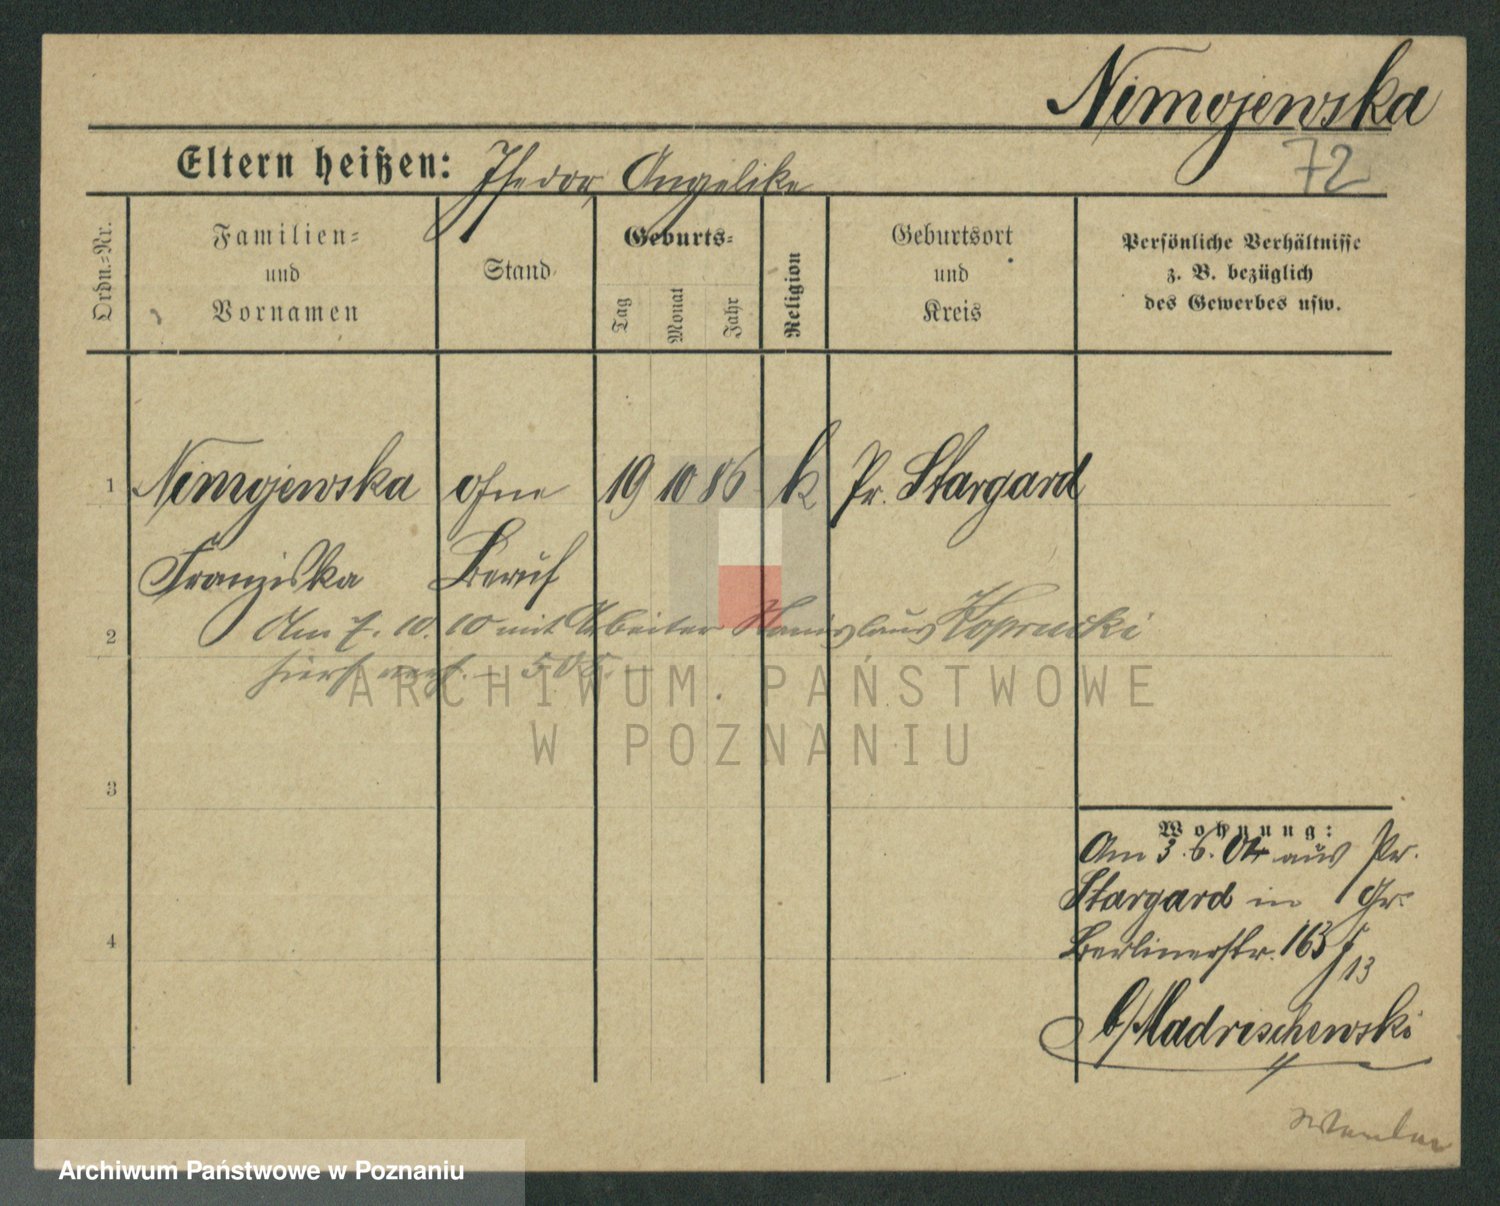 Nimojewska
72
Eltern heißen: Thedor, Angelike
Ordn.-Nr.
Familien-
und
Vornamen
Stand
Geburts-
Tag
Monat
Jahr
Religion
Geburtsort
und
Kreis
Persönliche Verhältnisse
z. B. bezüglich
des Gewerbes usw.
1 Nimojewska ohne 19 10 86 k Pr. Stargard
Franziska Beruf
Am 7. 10. 10 mit Arbeiter Stanislaus
2
hier verh. – 505.
ARCHIWUM PAŃSTWOWE
W POZNANIU
3
Wohnung:
Am 3. 6. 04 aus Pr.
Stargard in Gr.
4
Berlinerstr. 163
13
b/ Madrischewski
Archiwum Państwowe w Poznaniu